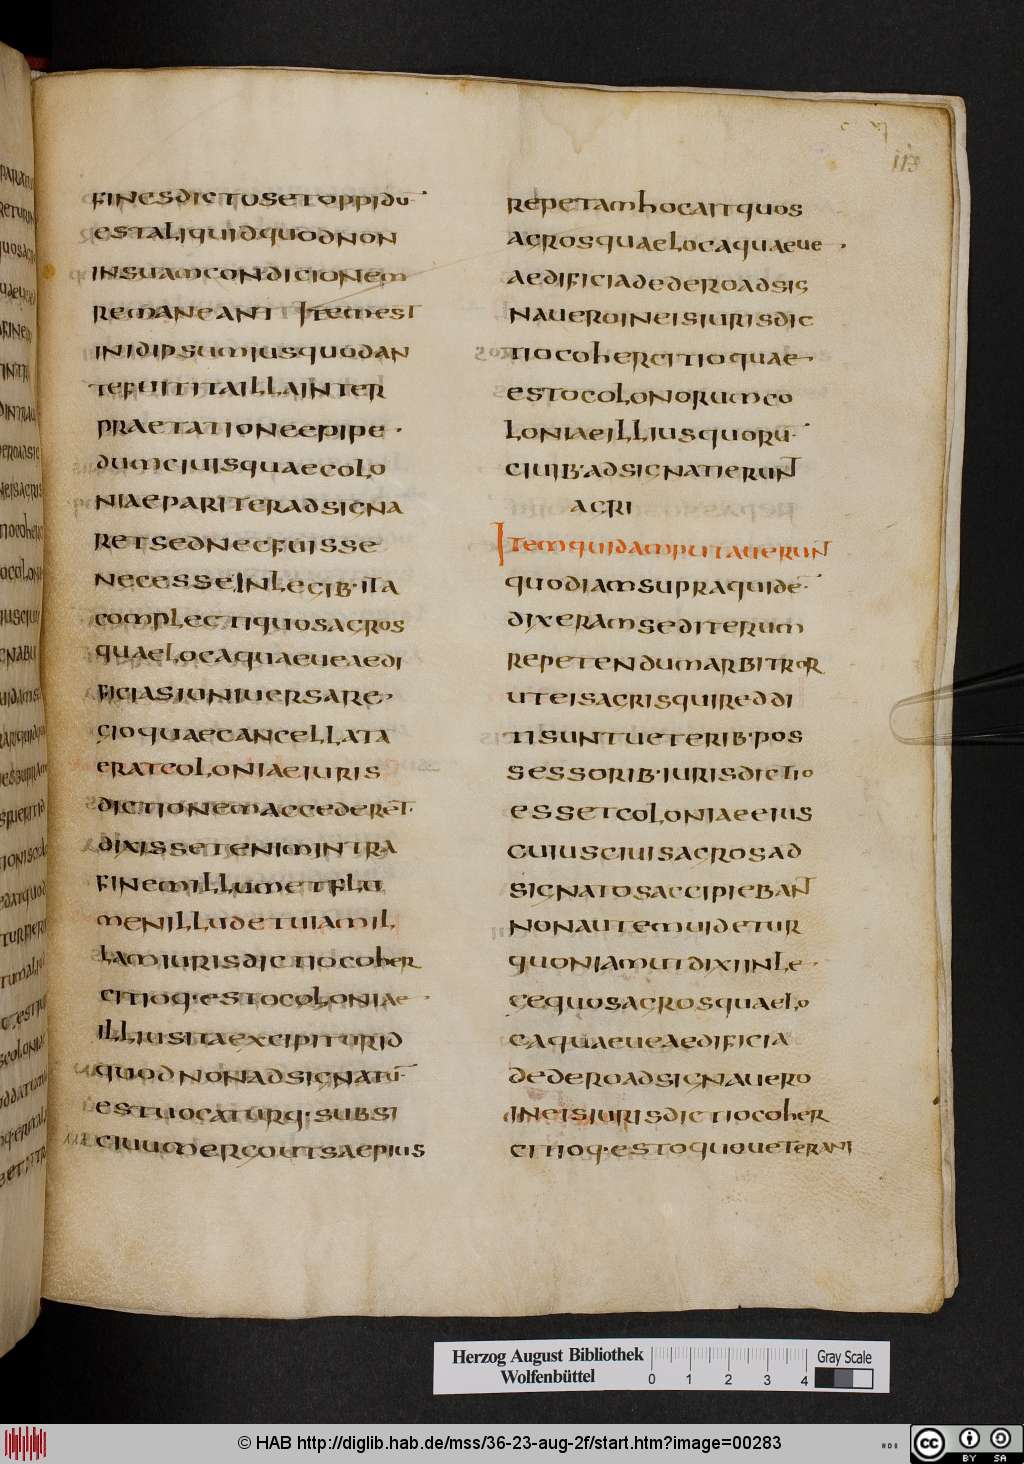 FINESDICTOSETOPPIDU̅·
ESTALIQUIDQUODNON
INSUAMCONDICIONEM
REMANEANT ITEMEST
INIDIPSUMIUSQUODAN
TEFUITITAILLAINTER
PRAETATIONEEPIPE·
DUMCIUISQUAECOLO
NIAEPARITERADSIGNA
RETSEDNECFUISSE
NECESSEINLEGIB·ITA
COMPLECTIQUOSAGROS
QUAELOCAQUAEUEAEDI
FICIASIUNIUERSARE
GIOQUAECANCELLATA
ERATCOLONIAEIURIS
DICTIONEMACCEDERET·
DIXISSETENIMINTRA
FINEMILLUMETFLU
MENILLUDETUIAMIL
LAMIURISDICTIOCOHER
CITIOQ·ESTOCOLONIAE·
ILLIUSITAEXCIPITURID
QUODNONADSIGNATU̅·
ESTUOCATURQ·SUBSI
CIUUMERGOUTSAEPIUS
REPETAMHOCAITQUOS
AGROSQUAELOCAQUAEUE·
AEDIFICIADEDEROADSIG
NAUEROINEISIURISDIC
TIOCOHERCITIOQUAE
ESTOCOLONORUMCO
LONIAEILLIUSQUORU̅·
CIUIB·ADSIGNATIERUNT
AGRI
ITEMQUIDAMPUTAUERUNT
QUODIAMSUPRAQUIDE̅·
DIXERAMSEDITERUM
REPETENDUMARBITROR
UTEISAGRISQUIREDDI
TISUNTUETERIB·POS
SESSORIB·IURISDICTIO
ESSETCOLONIAEEIUS
CUIUSCIUISAGROSAD
SIGNATOSACCIPIEBANT
NONAUTEMUIDETUR
QUONIAMUTDIXIINLE·
GEQUOSAGROSQUAELO
CAQUAEUEAEDIFICIA
DEDEROADSIGNAUERO
INEISIURISDICTIOCOHER
CITIOQ·ESTOQUOUETERANI
113
Herzog August Bibliothek
Wolfenbüttel
0 1 2 3 4
Gray Scale
© HAB http://diglib.hab.de/mss/36-23-aug-2f/start.htm?image=00283
cc BY SA